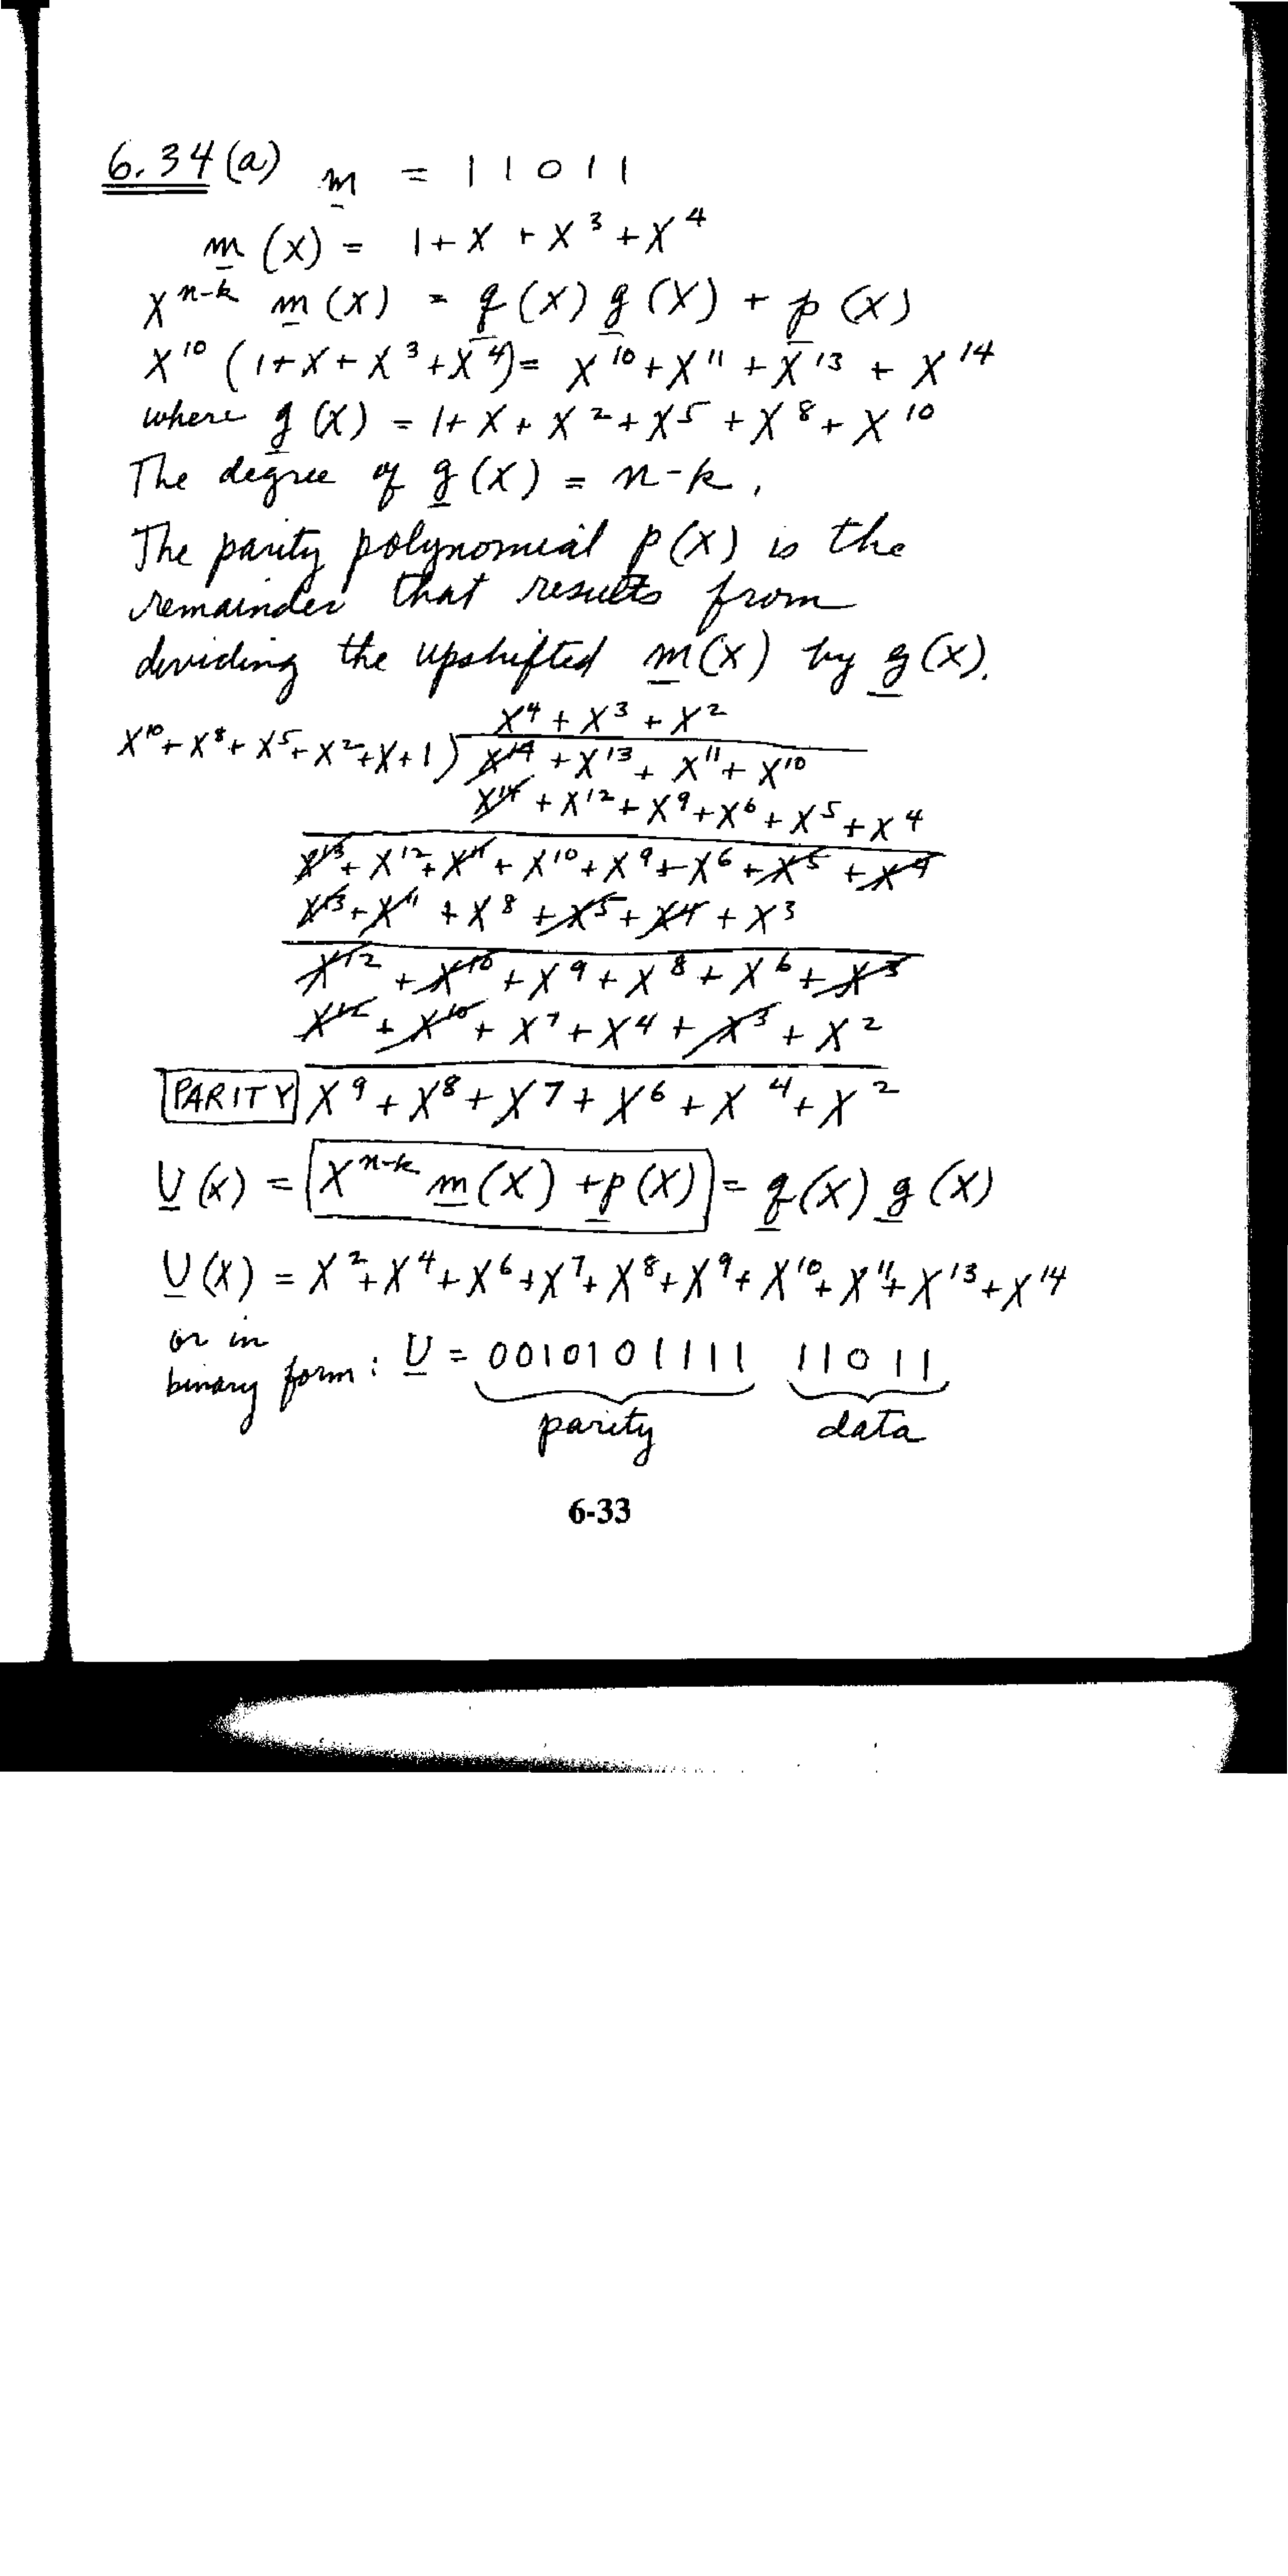 6.34(a) m = 11011
m(X) = 1+X+X³+X⁴
Xⁿ⁻ᵏ m(X) = q(X) g(X) + p(X)
X¹⁰(1+X+X³+X⁴) = X¹⁰+X¹¹+X¹³+X¹⁴
where g(X) = 1+X+X²+X⁵+X⁸+X¹⁰
The degree of g(X) = n-k,
The parity polynomial p(X) is the
remainder that results from
dividing the upshifted m(X) by g(X).
X⁴+X³+X²
X¹⁰+X⁸+X⁵+X²+X+1) X¹⁴+X¹³+X¹¹+X¹⁰
X¹⁴+X¹²+X⁹+X⁶+X⁵+X⁴
X¹³+X¹²+X¹¹+X¹⁰+X⁹+X⁶+X⁵+X⁴
X¹³+X¹¹+X⁸+X⁵+X⁴+X³
X¹²+X¹⁰+X⁹+X⁸+X⁶+X³
X¹²+X¹⁰+X⁷+X⁴+X³+X²
PARITY X⁹+X⁸+X⁷+X⁶+X⁴+X²
U(X) = Xⁿ⁻ᵏ m(X) + p(X) = q(X) g(X)
U(X) = X²+X⁴+X⁶+X⁷+X⁸+X⁹+X¹⁰+X¹¹+X¹³+X¹⁴
or in
binary form: U = 0010101111 11011
parity data
6-33